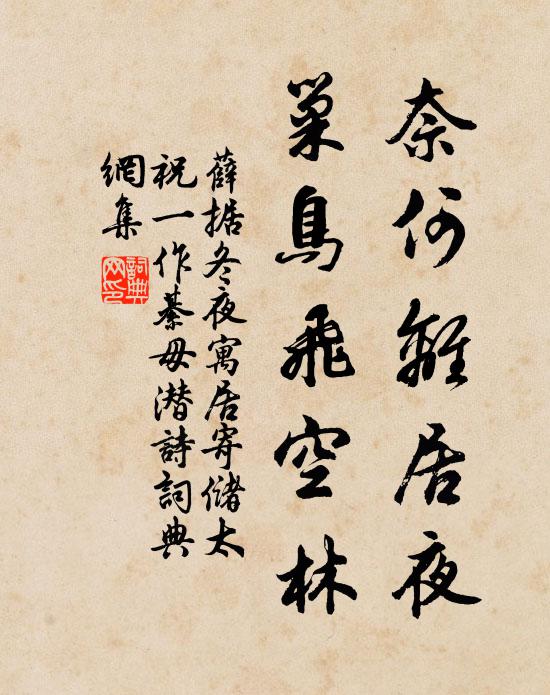 奈何離居夜
巢鳥飛空林
薛据冬夜寓居寄儲太
祝一作綦毋潛詩詞典
網集
詞典
网印